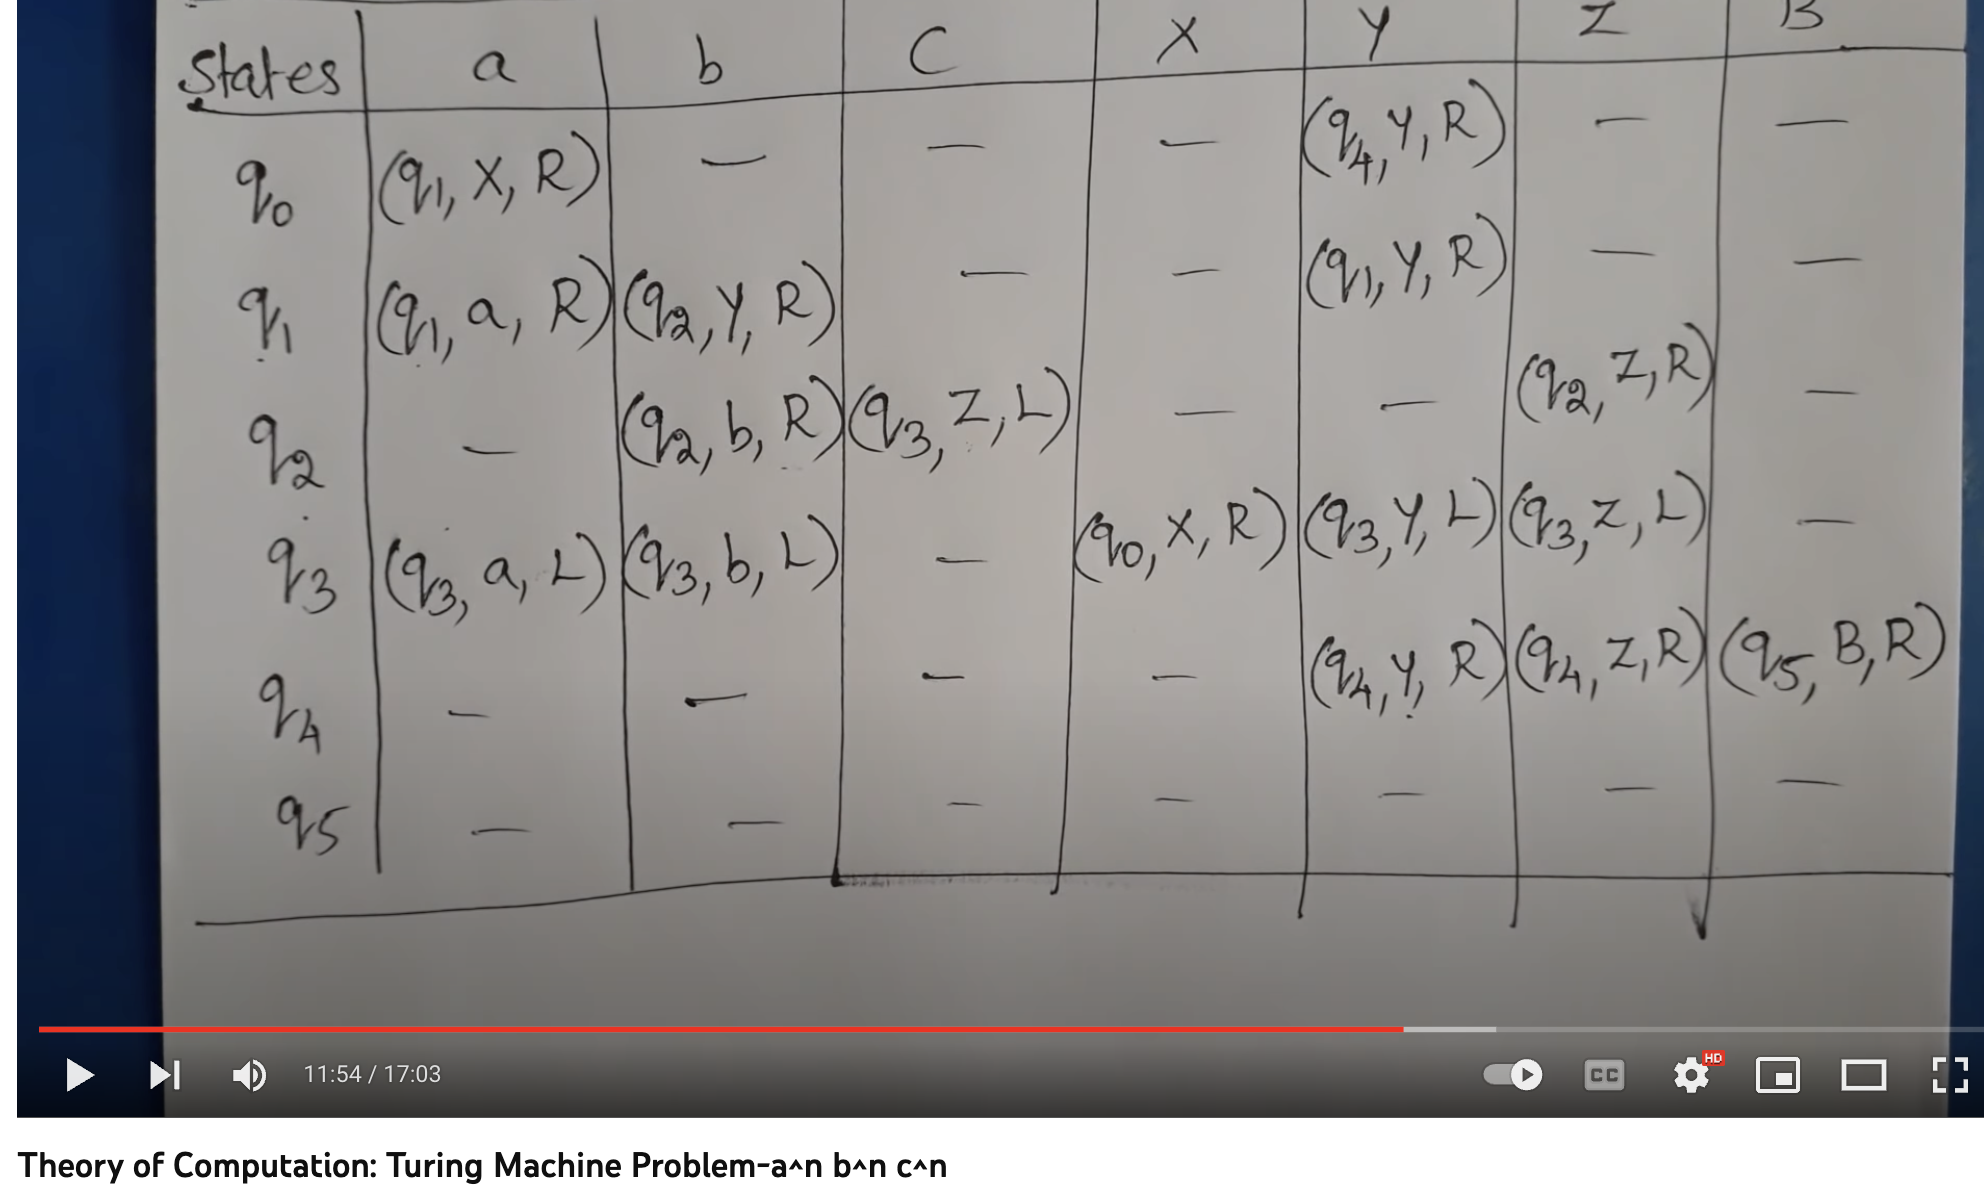 States a b C X Y Z B
q0 (q1, X, R) — — — (q4, Y, R) — —
q1 (q1, a, R) (q2, Y, R) — — (q1, Y, R) — —
q2 — (q2, b, R) (q3, Z, L) — — (q2, Z, R) —
q3 (q3, a, L) (q3, b, L) — (q0, X, R) (q3, Y, L) (q3, Z, L) —
q4 — — — — (q4, Y, R) (q4, Z, R) (q5, B, R)
q5 — — — — — — —
11:54 / 17:03
CC
HD
Theory of Computation: Turing Machine Problem-a^n b^n c^n